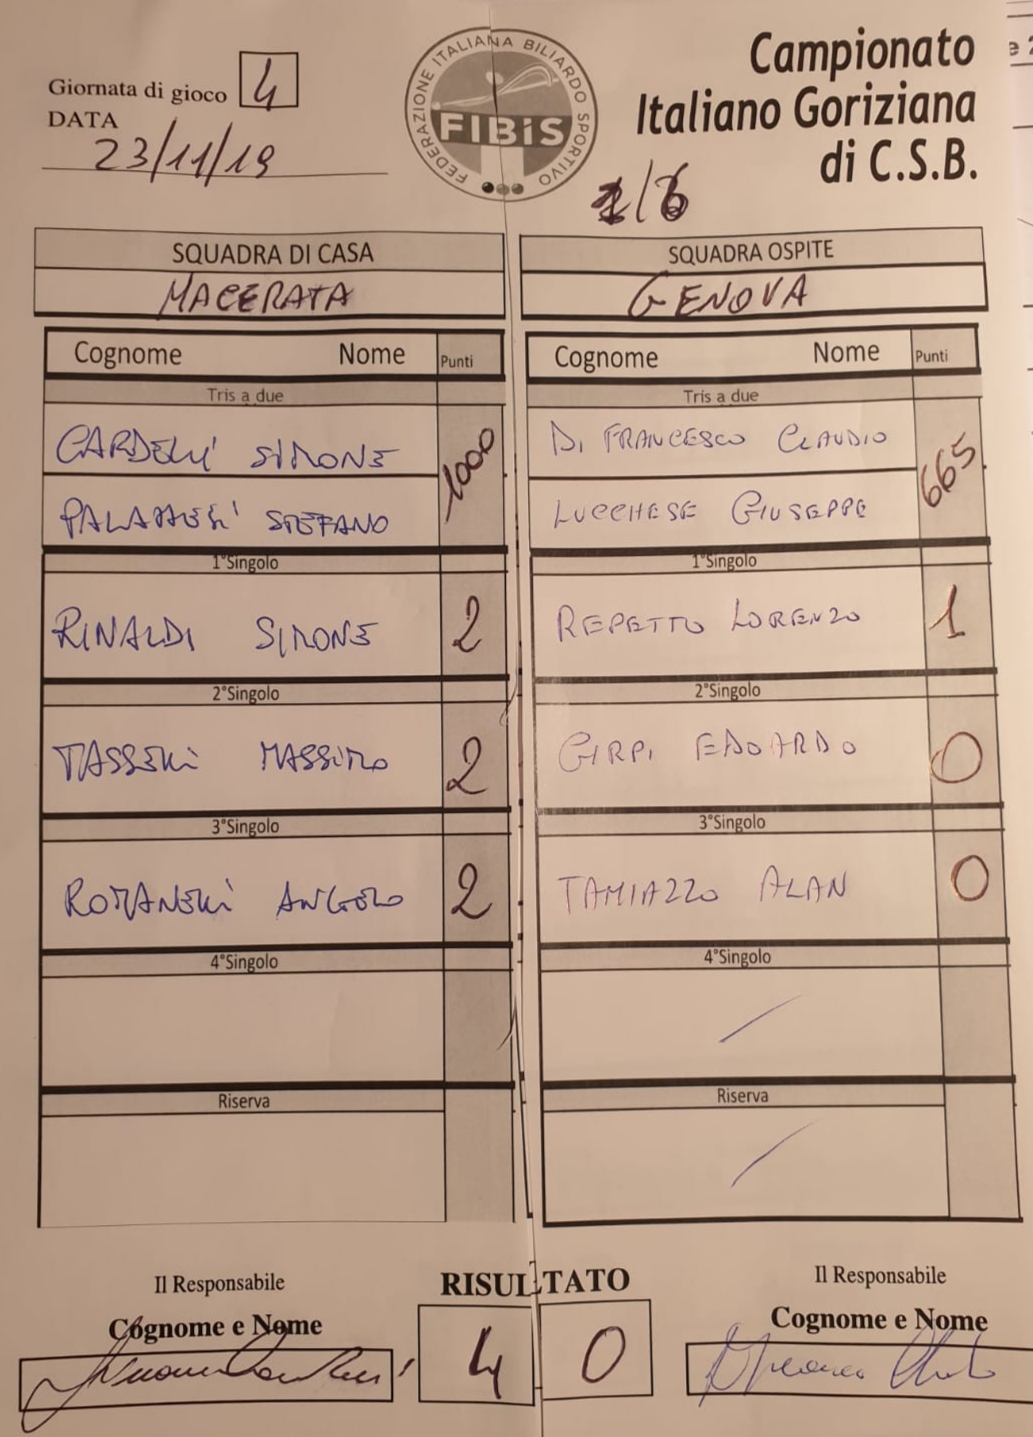 Giornata di gioco 4
DATA
23/11/19
FEDERAZIONE ITALIANA BILIARDO SPORTIVO
FIBiS
Campionato
Italiano Goriziana
di C.S.B.
SQUADRA DI CASA
MACERATA
Cognome Nome Punti
Tris a due
CARDELLI SIMONE
1000
STEFANO
1°Singolo
RINALDI SIMONE 2
2°Singolo
MASSIMO 2
3°Singolo
ROMANELLI ANGELO 2
4°Singolo
Riserva
SQUADRA OSPITE
GENOVA
Cognome Nome Punti
Tris a due
DI FRANCESCO CLAUDIO
665
LUCCHESE GIUSEPPE
1°Singolo
REPETTO LORENZO 1
2°Singolo
GIRPI EDOARDO 0
3°Singolo
TAMIAZZO ALAN 0
4°Singolo
Riserva
Il Responsabile
Cognome e Nome
RISULTATO
4 0
Il Responsabile
Cognome e Nome